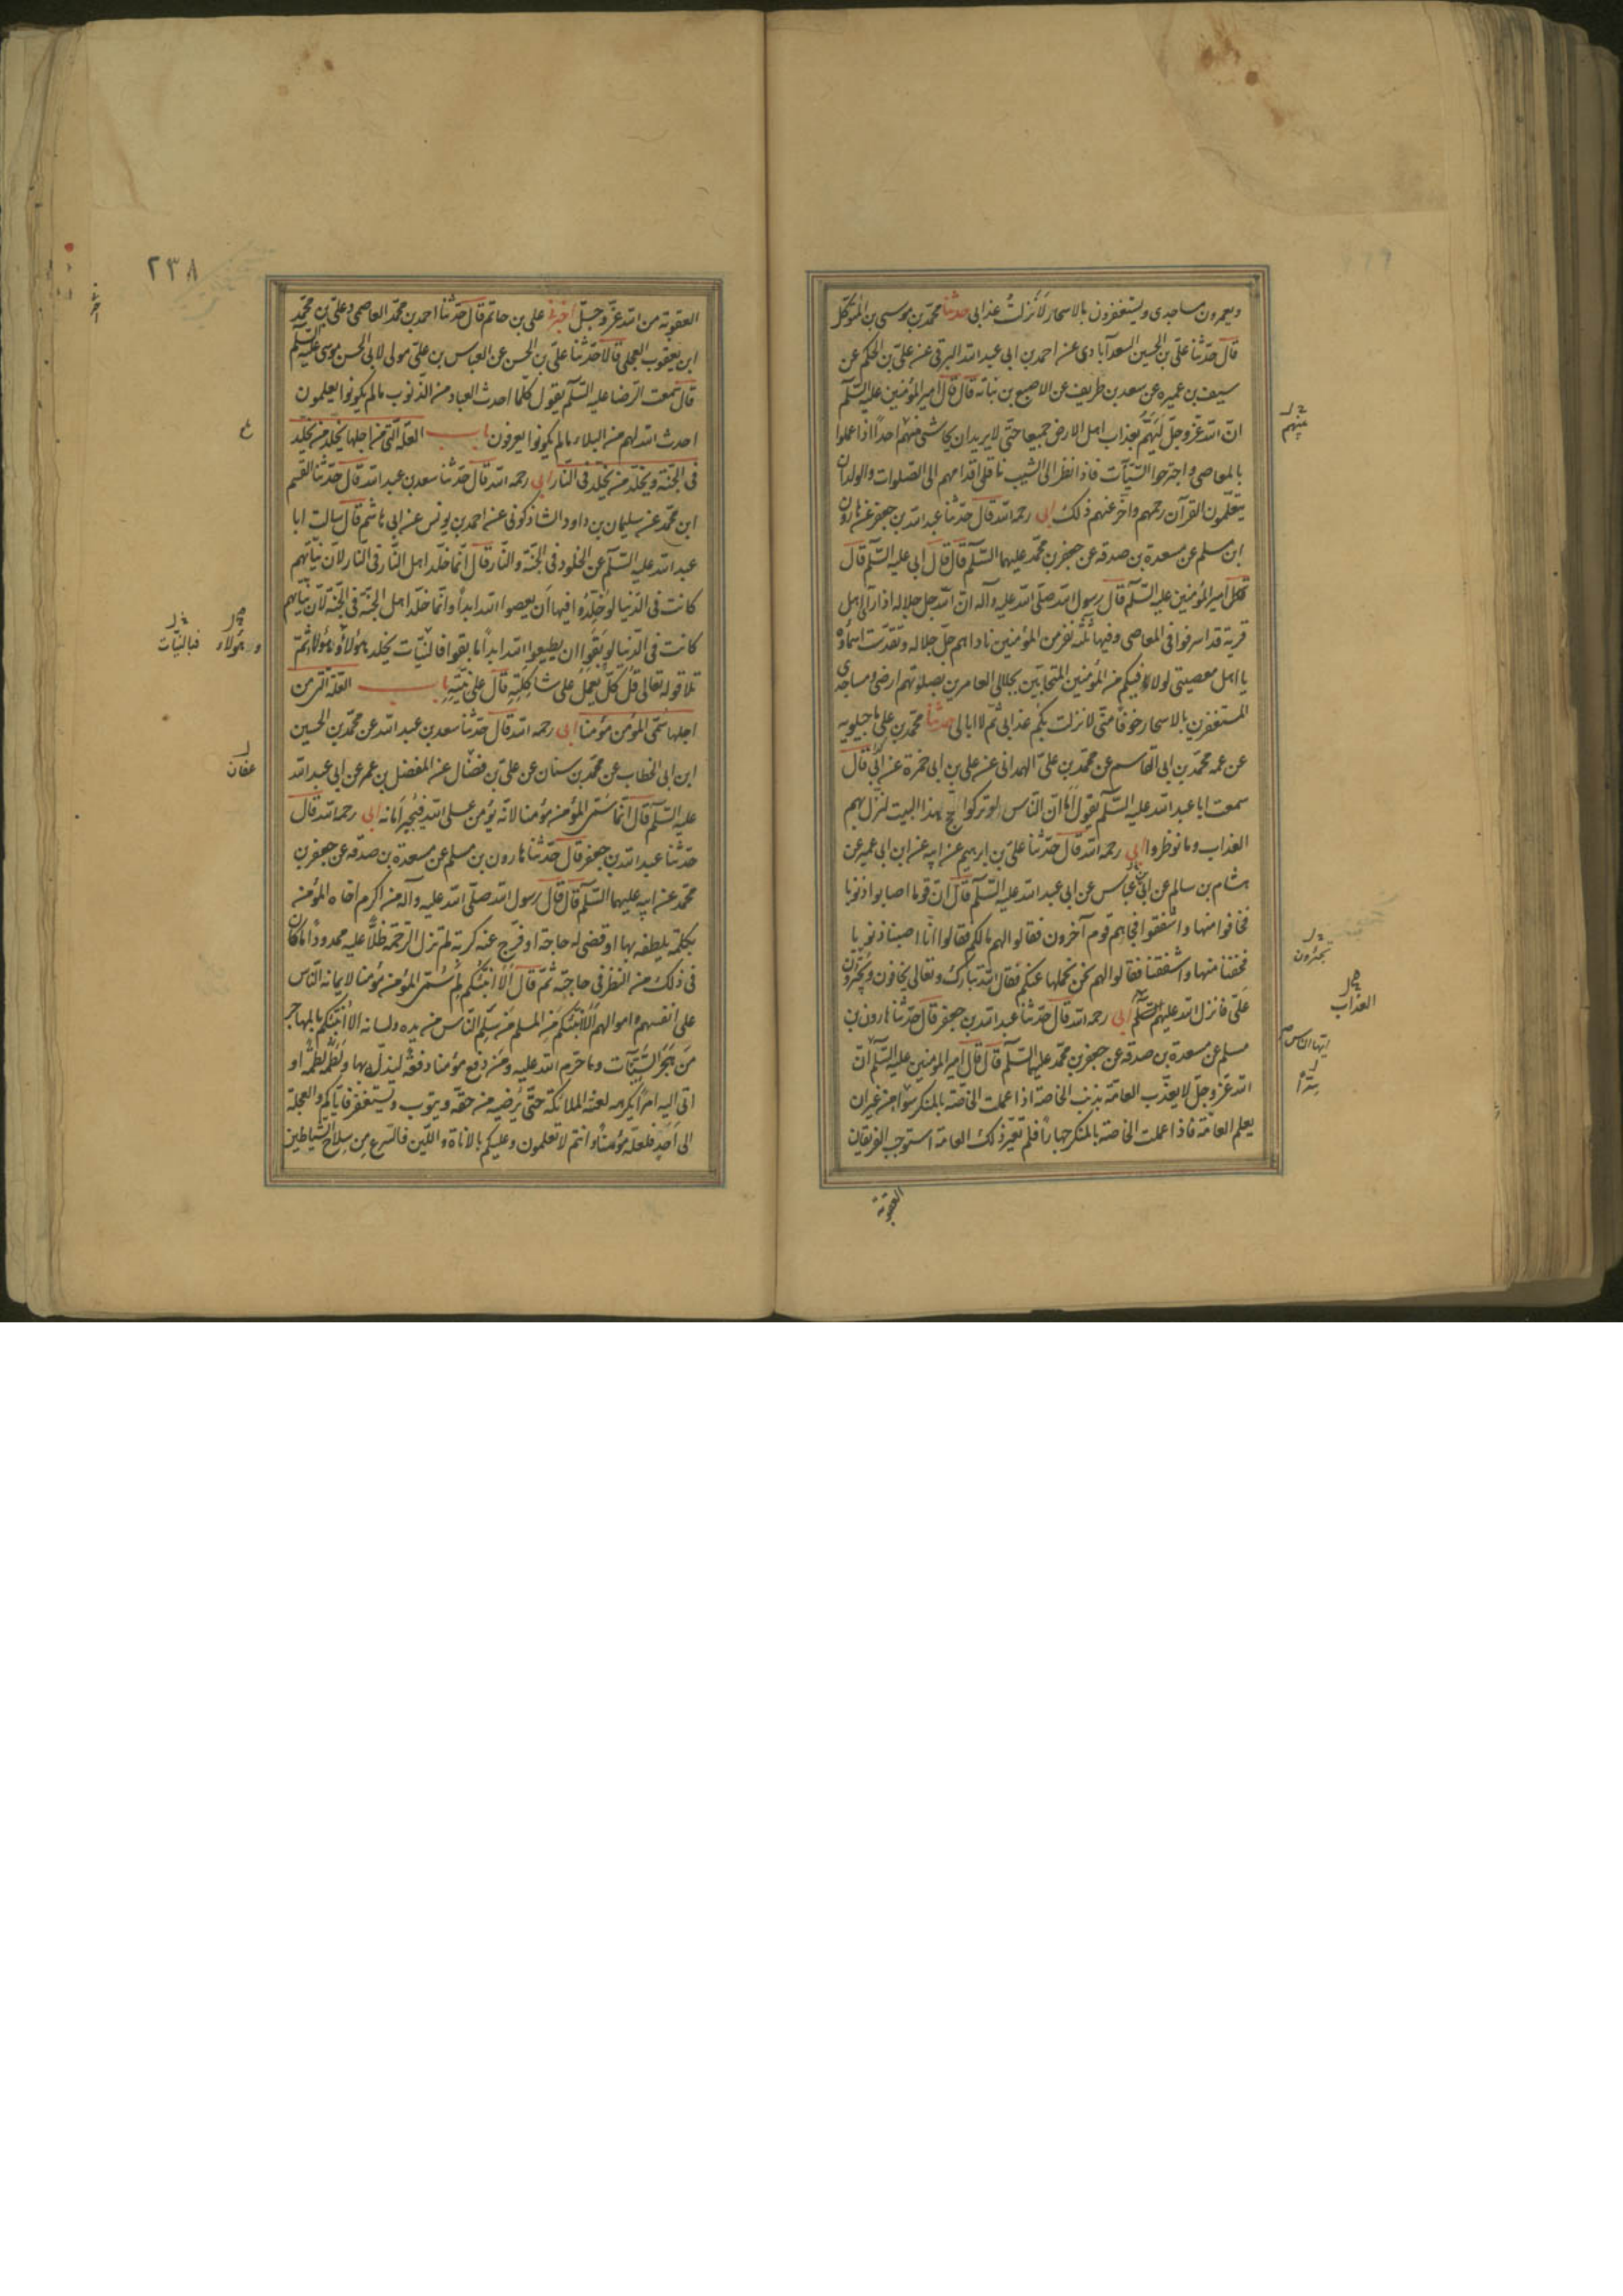 ويعمرون مساجدى ويستغفرون بالاسحار لَاَنزلتُ عذابى حدثنا محمّد بن موسى بن المتوكّل
قال حدّثنا علىّ بن الحسين السعدآبادى عن احمد بن ابى عبد الله البرقى عن علىّ بن الحكم عن
سيف بن عميره عن سعد بن طريف عن الاصبغ بن نباته قال قال امير المؤمنين عليه السّلم
انّ الله عزّ وجلّ لَيَهُمُّ بعذاب اهل الارض جميعا حتّى لا يريد ان يحاشى منهم احداً اذا عملوا
بالمعاصى واجترحوا السّيّآت فاذا نظر الى الشيب ناقلى اقدامهم الى الصّلوات والولدان
يتعلّمون القرآن رحمهم واخّر عنهم ذلك ابى رحمه الله قال حدّثنا عبد الله بن جعفر عن هارون
ابن مسلم عن مسعدة بن صدقه عن جعفر بن محمّد عليهما السّلم قال قال ابى عليه السّلم قال
امير المؤمنين عليه السّلم قال رسول الله صلّى الله عليه وآله انّ الله جلّ جلاله اذا رأى اهل
قرية قد اسرفوا فى المعاصى وفيها ثلثه نفر من المؤمنين ناداهم جلّ جلاله وتقدّست اسماؤه
يا اهل معصيتى لولا ما فيكم من المؤمنين المتحابّين بجلالى العامرين بصلوتهم ارضى ومساجدى
المستغفرين بالاسحار خوفاً منّى لانزلت بكم عذابى ثمّ لا ابالى حدثنا محمّد بن على ماجيلويه
عن عمّه محمّد بن ابى القاسم عن محمّد بن علىّ الهمدانى عن على بن ابى حمزة عن ابى قال
سمعت ابا عبد الله عليه السّلم يقول اَما انّ النّاس لو تركوا حجّ هذا البيت لنزل بهم
العذاب وما نوظروا ابى رحمه الله قال حدّثنا علىّ بن ابرهيم عن ابيه عن ابن ابى عمير عن
هشام بن سالم عن ابى عباس عن ابى عبد الله عليه السّلم قال انّ قوما اصابوا ذنوبا
فخافوا منها واشفقوا فجاءهم قوم آخرون فقالوا لهم مالكم فقالوا انّا اصبنا ذنوبا
فخفنا منها واشفقنا فقالوا لهم نحن نحملها عنكم فقال الله تبارك وتعالى يخافون وتجترؤن
علىّ فانزل الله عليهم ابى رحمه الله قال حدّثنا عبد الله بن جعفر قال حدّثنا هارون بن
مسلم عن مسعدة بن صدقه عن جعفر بن محمّد عليهما السّلم قال قال امير المؤمنين عليه السّلم انّ
الله عزّ وجلّ لا يعذّب العامّة بذنب الخاصّة اذا عملت الخاصّة بالمنكر سرّا من غير ان
يعلم العامّة فاذا عملت الخاصة بالمنكر جهاراً فلم تغيّر ذلك العامة استوجب الفريقان
العقوبة
منهم
تجترؤن
العذاب
ايها الناس
سرّا
٢٣٨
العقوبة من الله عزّ وجلّ اخبرنى على بن حاتم قال حدّثنا احمد بن محمّد العاصمى وعلىّ بن محمّد
ابن يعقوب العجلى قالا حدّثنا علىّ بن الحسن عن العباس بن علىّ مولى لابى الحسن موسى عليه السّلم
قال سمعت الرّضا عليه السّلم يقول كلّما احدث العباد من الذّنوب مالم يكونوا يعلمون
احدث الله لهم من البلاء مالم يكونوا يعرفون باب العلّة الّتى من اجلها يخلّد من يخلّد
فى الجنّة ويخلّد من يخلّد فى النّار ابى رحمه الله قال حدّثنا سعد بن عبد الله قال حدّثنا القسم
ابن محمّد عن سليمان بن داود الشاذكونى عن احمد بن يونس عن ابى هاشم قال سالت ابا
عبد الله عليه السّلم عن الخلود فى الجنّة والنّار قال انّما خلّد اهل النّار فى النار لانّ نيّاتهم
كانت فى الدّنيا لو خُلّدوا فيها اَن يعصوا الله ابداً وانّما خلّد اهل الجنّة فى الجنّة لانّ نيّاتهم
كانت فى الدّنيا لو بَقُوا ان يطيعوا الله ابداً ما بقوا فالنّيّات يخلد هؤلاء وهؤلاء ثمّ
تلا قوله تعالى قُل كلّ يَعمَلُ على شاكِلَتِه قال على نيّتِهِ باب العلّة الّتى من
اجلها سُمّى المؤمن مؤمنا ابى رحمه الله قال حدّثنا سعد بن عبد الله عن محمّد بن الحسين
ابن ابى الخطاب عن محمّد بن سنان عن علىّ بن فضّال عن المفضل بن عمر عن ابى عبد الله
عليه السّلم قال انّما سُمّى المؤمن مؤمنا لانّه يؤمن على الله فيُجيز اَمانه ابى رحمه الله قال
حدّثنا عبد الله بن جعفر قال حدّثنا هارون بن مسلم عن مسعدة بن صدقه عن جعفر بن
محمّد عن ابيه عليهما السّلم قال قال رسول الله صلّى الله عليه وآله من اكرم اخاه المؤمن
بكلمة يلطفه بها او قضى له حاجة او فرّج عنه كربة لم تزل الرّحمة ظلّاً عليه ممدوداً ما كان
فى ذلك من النّظر فى حاجته ثمّ قال اَلا اُنبّئكم لِمَ سُمّى المؤمن مؤمنا لايمانه النّاس
على انفسهم واموالهم اَلا اُنبّئكم مَنِ المسلم مَن سلِم النّاس من يده ولسانه الا اُنبّئكم بالمهاجر
مَن هَجَر السّيّئآت وما حرّم الله عليه ومَن دَفع مؤمنا دفعةً ليذلّه بها او لَطَمَه لطمةً او
اتى اليه امراً يكرهه لعنته الملائكة حتّى يُرضيه من حقّه ويتوب ويستغفر فايّاكم والعجلة
الى اَحَدٍ فلعلّه مؤمنٌ وانتم لا تعلمون وعليكم بالاناة واللّين فالتّسرّع مِن سِلاح الشّياطين
وهؤلاء
فبالنيّات
عفان